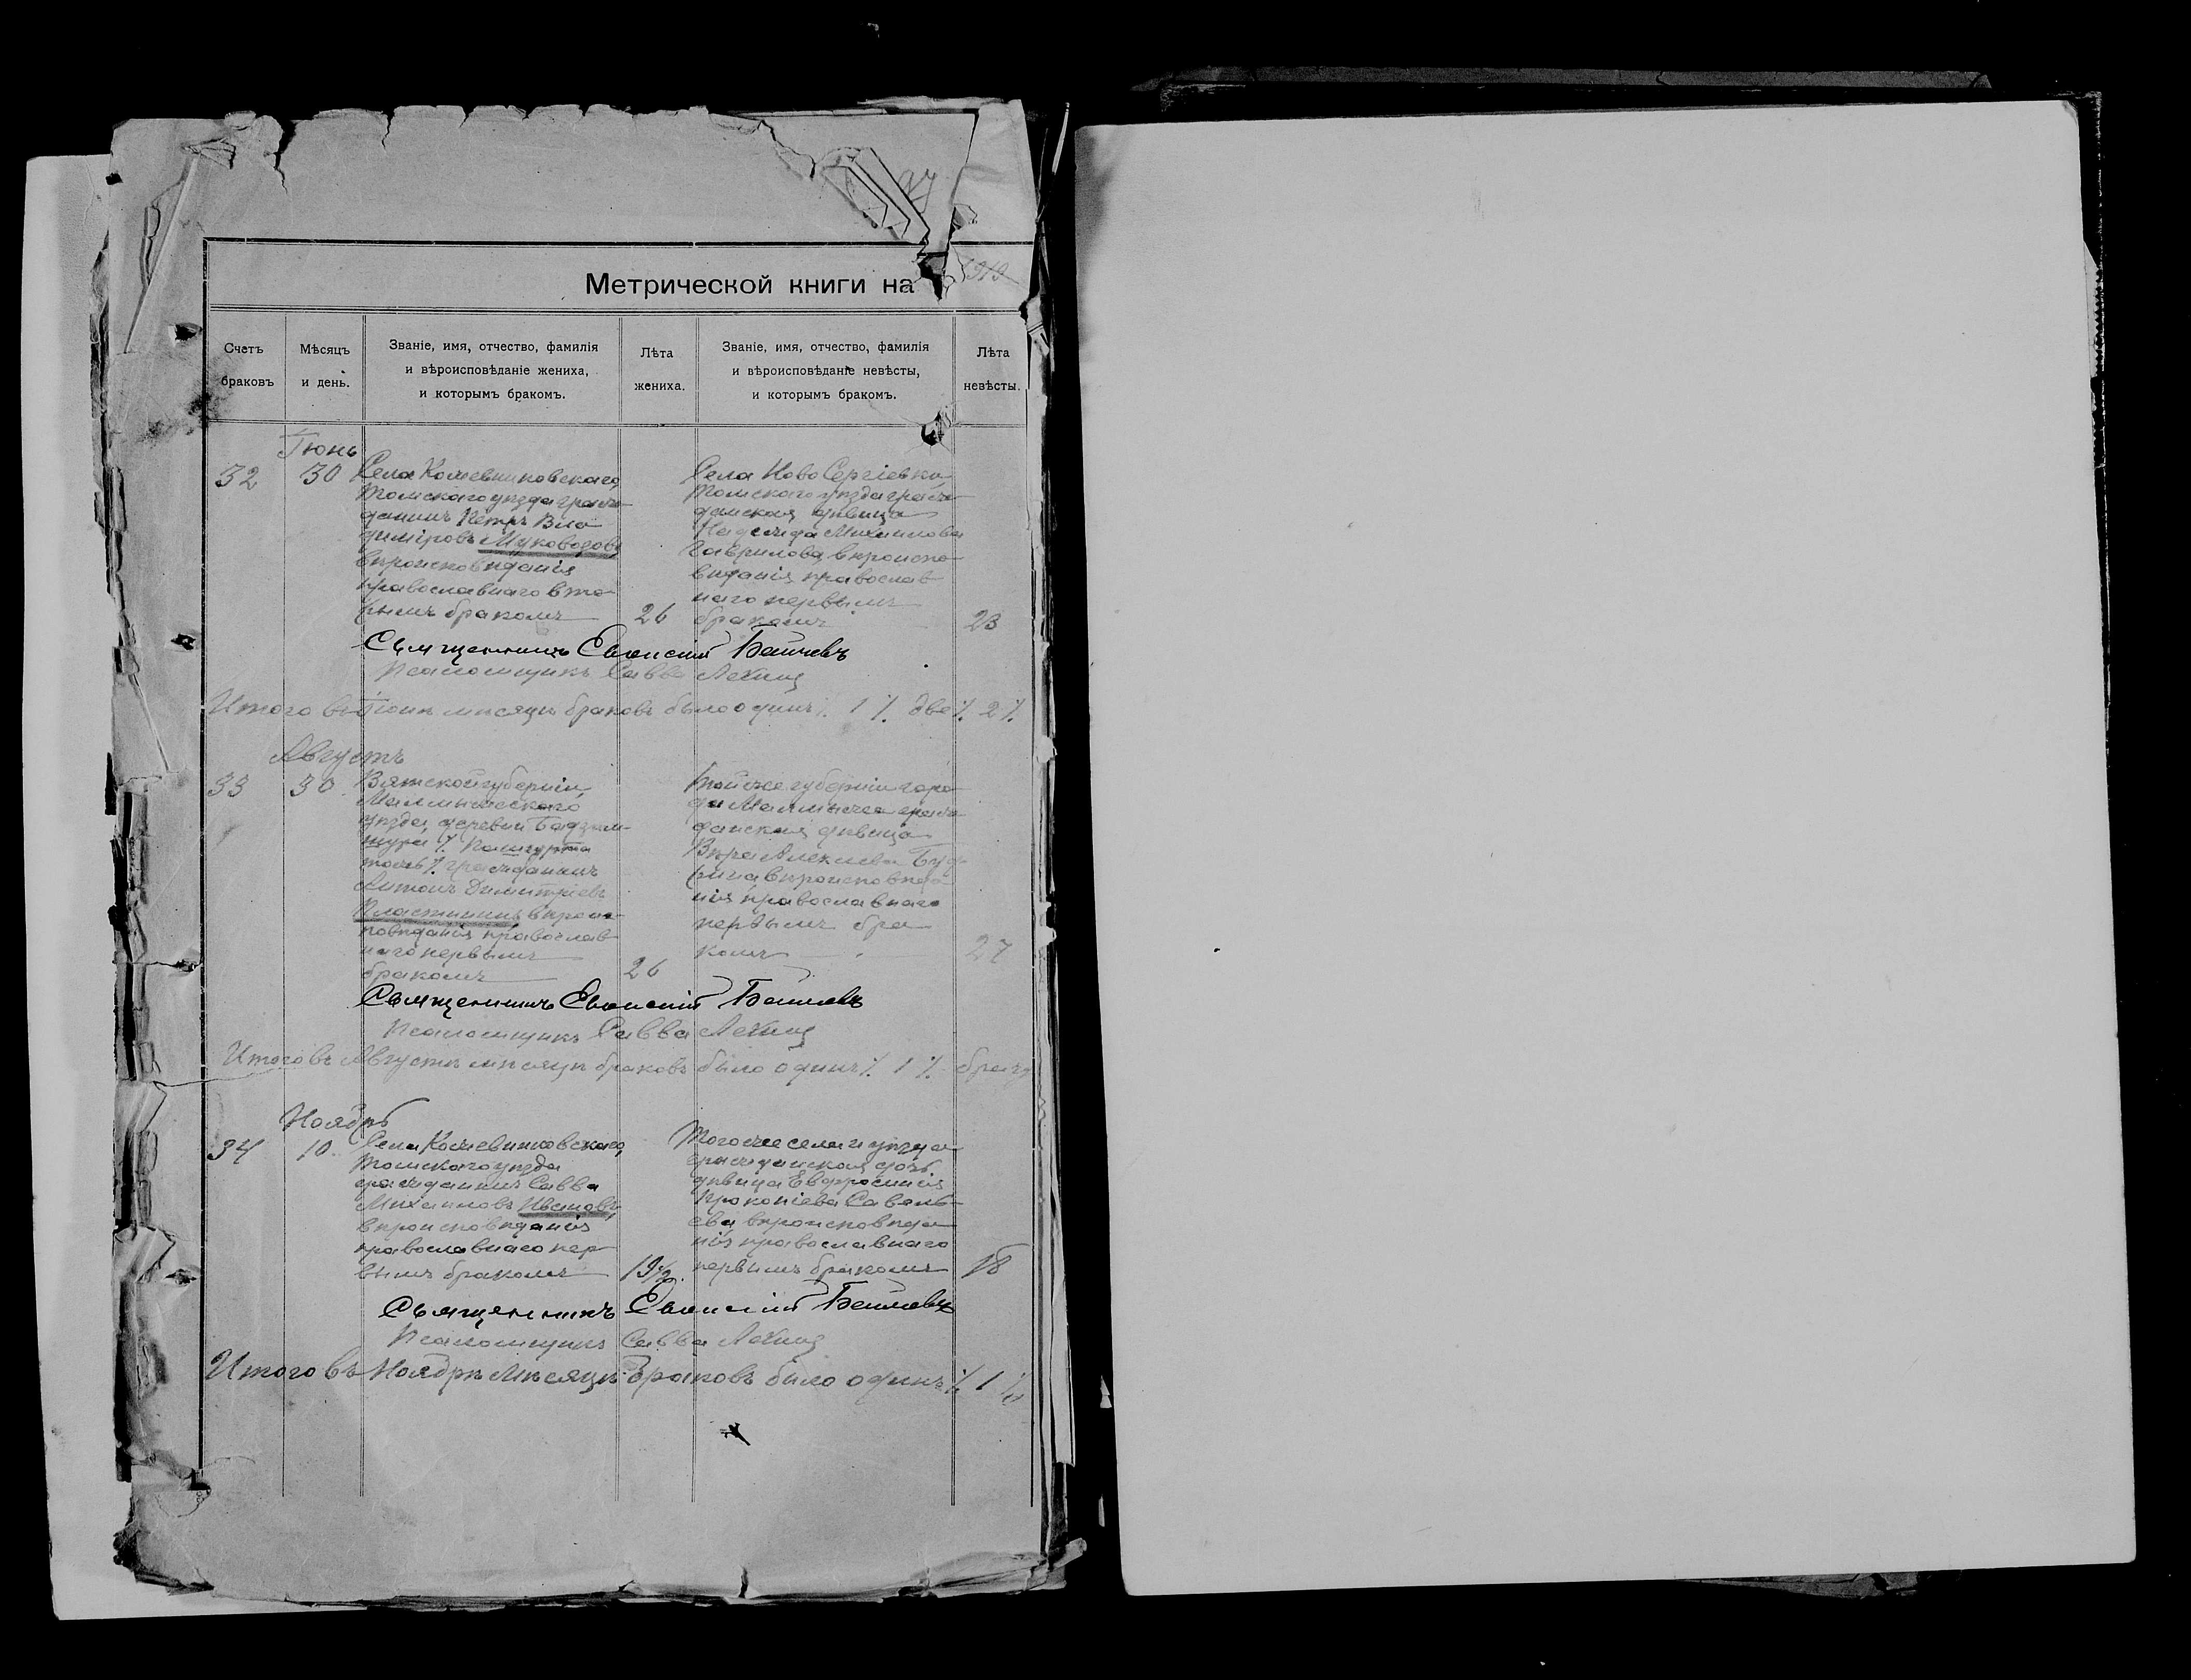 Метрической книги на 1919
Счетъ браковъ
Мѣсяцъ и день.
Званіе, имя, отчество, фамилія
и вѣроисповѣданіе жениха,
и которымъ бракомъ.
Лѣта жениха.
Званіе, имя, отчество, фамилія
и вѣроисповѣданіе невѣсты,
и которымъ бракомъ.
Лѣта невѣсты.
Іюнь
32
30
Села Кожевниковскаго,
Томскаго уѣзда граж-
данинъ Петръ Вла-
диміровъ Муковозовъ,
вѣроисповѣданія
православнаго вто-
рымъ бракомъ
26
Села Ново Сергіевки,
Томскаго уѣзда граж-
данская дѣвица
Надежда Михаилова
Гаврилова, вѣроиспо-
вѣданія православ-
наго первымъ
бракомъ
23
Священникъ Евгеній
Псаломщикъ Савва
Итого въ Іюнѣ мѣсяцѣ браковъ было одинъ ٪ 1 ٪ две ٪ 2 ٪
Августъ
33
30
Вятской губерніи,
Малмыжскаго
уѣзда, деревни
гражданинъ
Антонъ Димитріевъ
Пластининъ, вѣроис-
повѣданія православ-
наго первымъ
бракомъ
26
Той же губерніи горо-
да Малмыжа граж-
данская дѣвица
Вѣра Алексіева
вѣроисповѣда-
нія православнаго
первымъ бра-
комъ
27
Священникъ Евгеній
Псаломщикъ Савва
Итого въ Августѣ мѣсяцѣ браковъ было одинъ ٪ 1 ٪
Ноябрь
34
10
Села Кожевниковскаго,
Томскаго уѣзда
гражданинъ Савва
Михаиловъ Ивановъ,
вѣроисповѣданія
православнаго пер-
вымъ бракомъ
19½
Того же села и уѣзда
гражданская дочь
дѣвица Евфросинія
Прокопіева Савель-
ева, вѣроисповѣда-
нія православнаго
первымъ бракомъ
18
Священникъ Евгеній
Псаломщикъ Савва
Итого въ Ноябрѣ мѣсяцѣ браковъ было одинъ ٪ 1 ٪